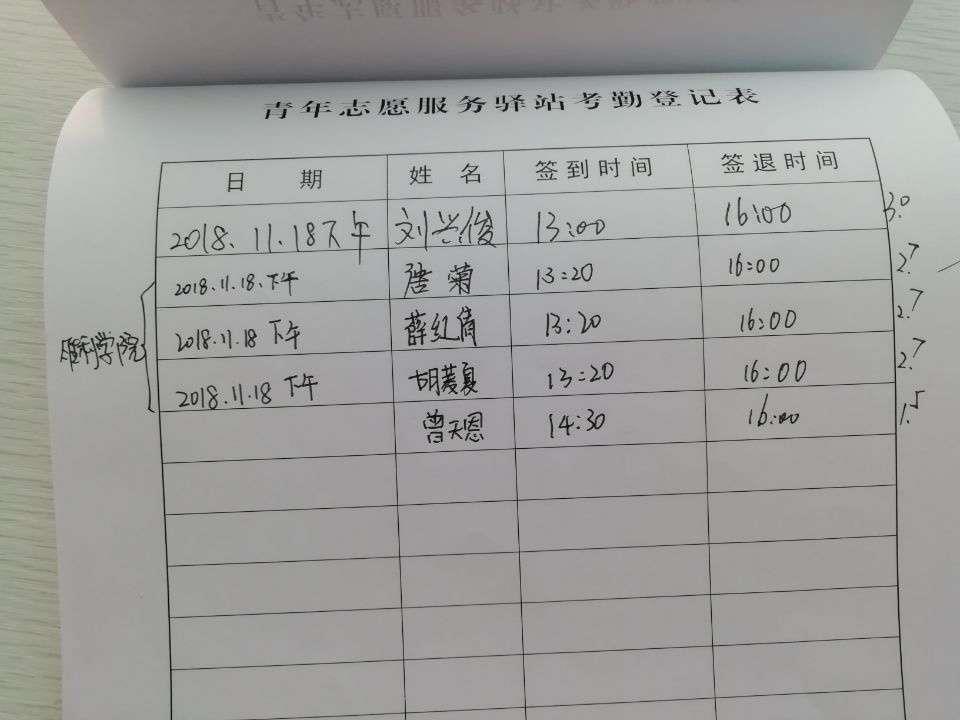 青年志愿服务驿站考勤登记表
日 期 姓 名 签到时间 签退时间
2018.11.18下午 刘兴俊 13:00 16:00 3.0
2018.11.18.下午 唐菊 13:20 16:00 2.7
2018.11.18 下午 薛红倩 13:20 16:00 2.7
2018.11.18 下午 胡菱夏 13:20 16:00 2.7
曾天恩 14:30 16:00 1.5
学院